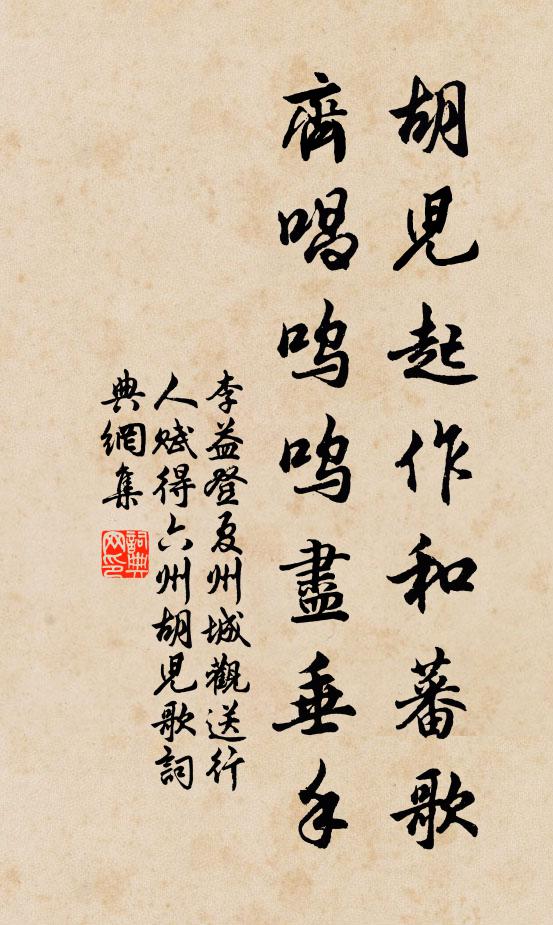 胡兒起作和蕃歌
齊唱嗚嗚盡垂手
李益登夏州城觀送行
人賦得六州胡兒歌詞
典網集
詞典
网印